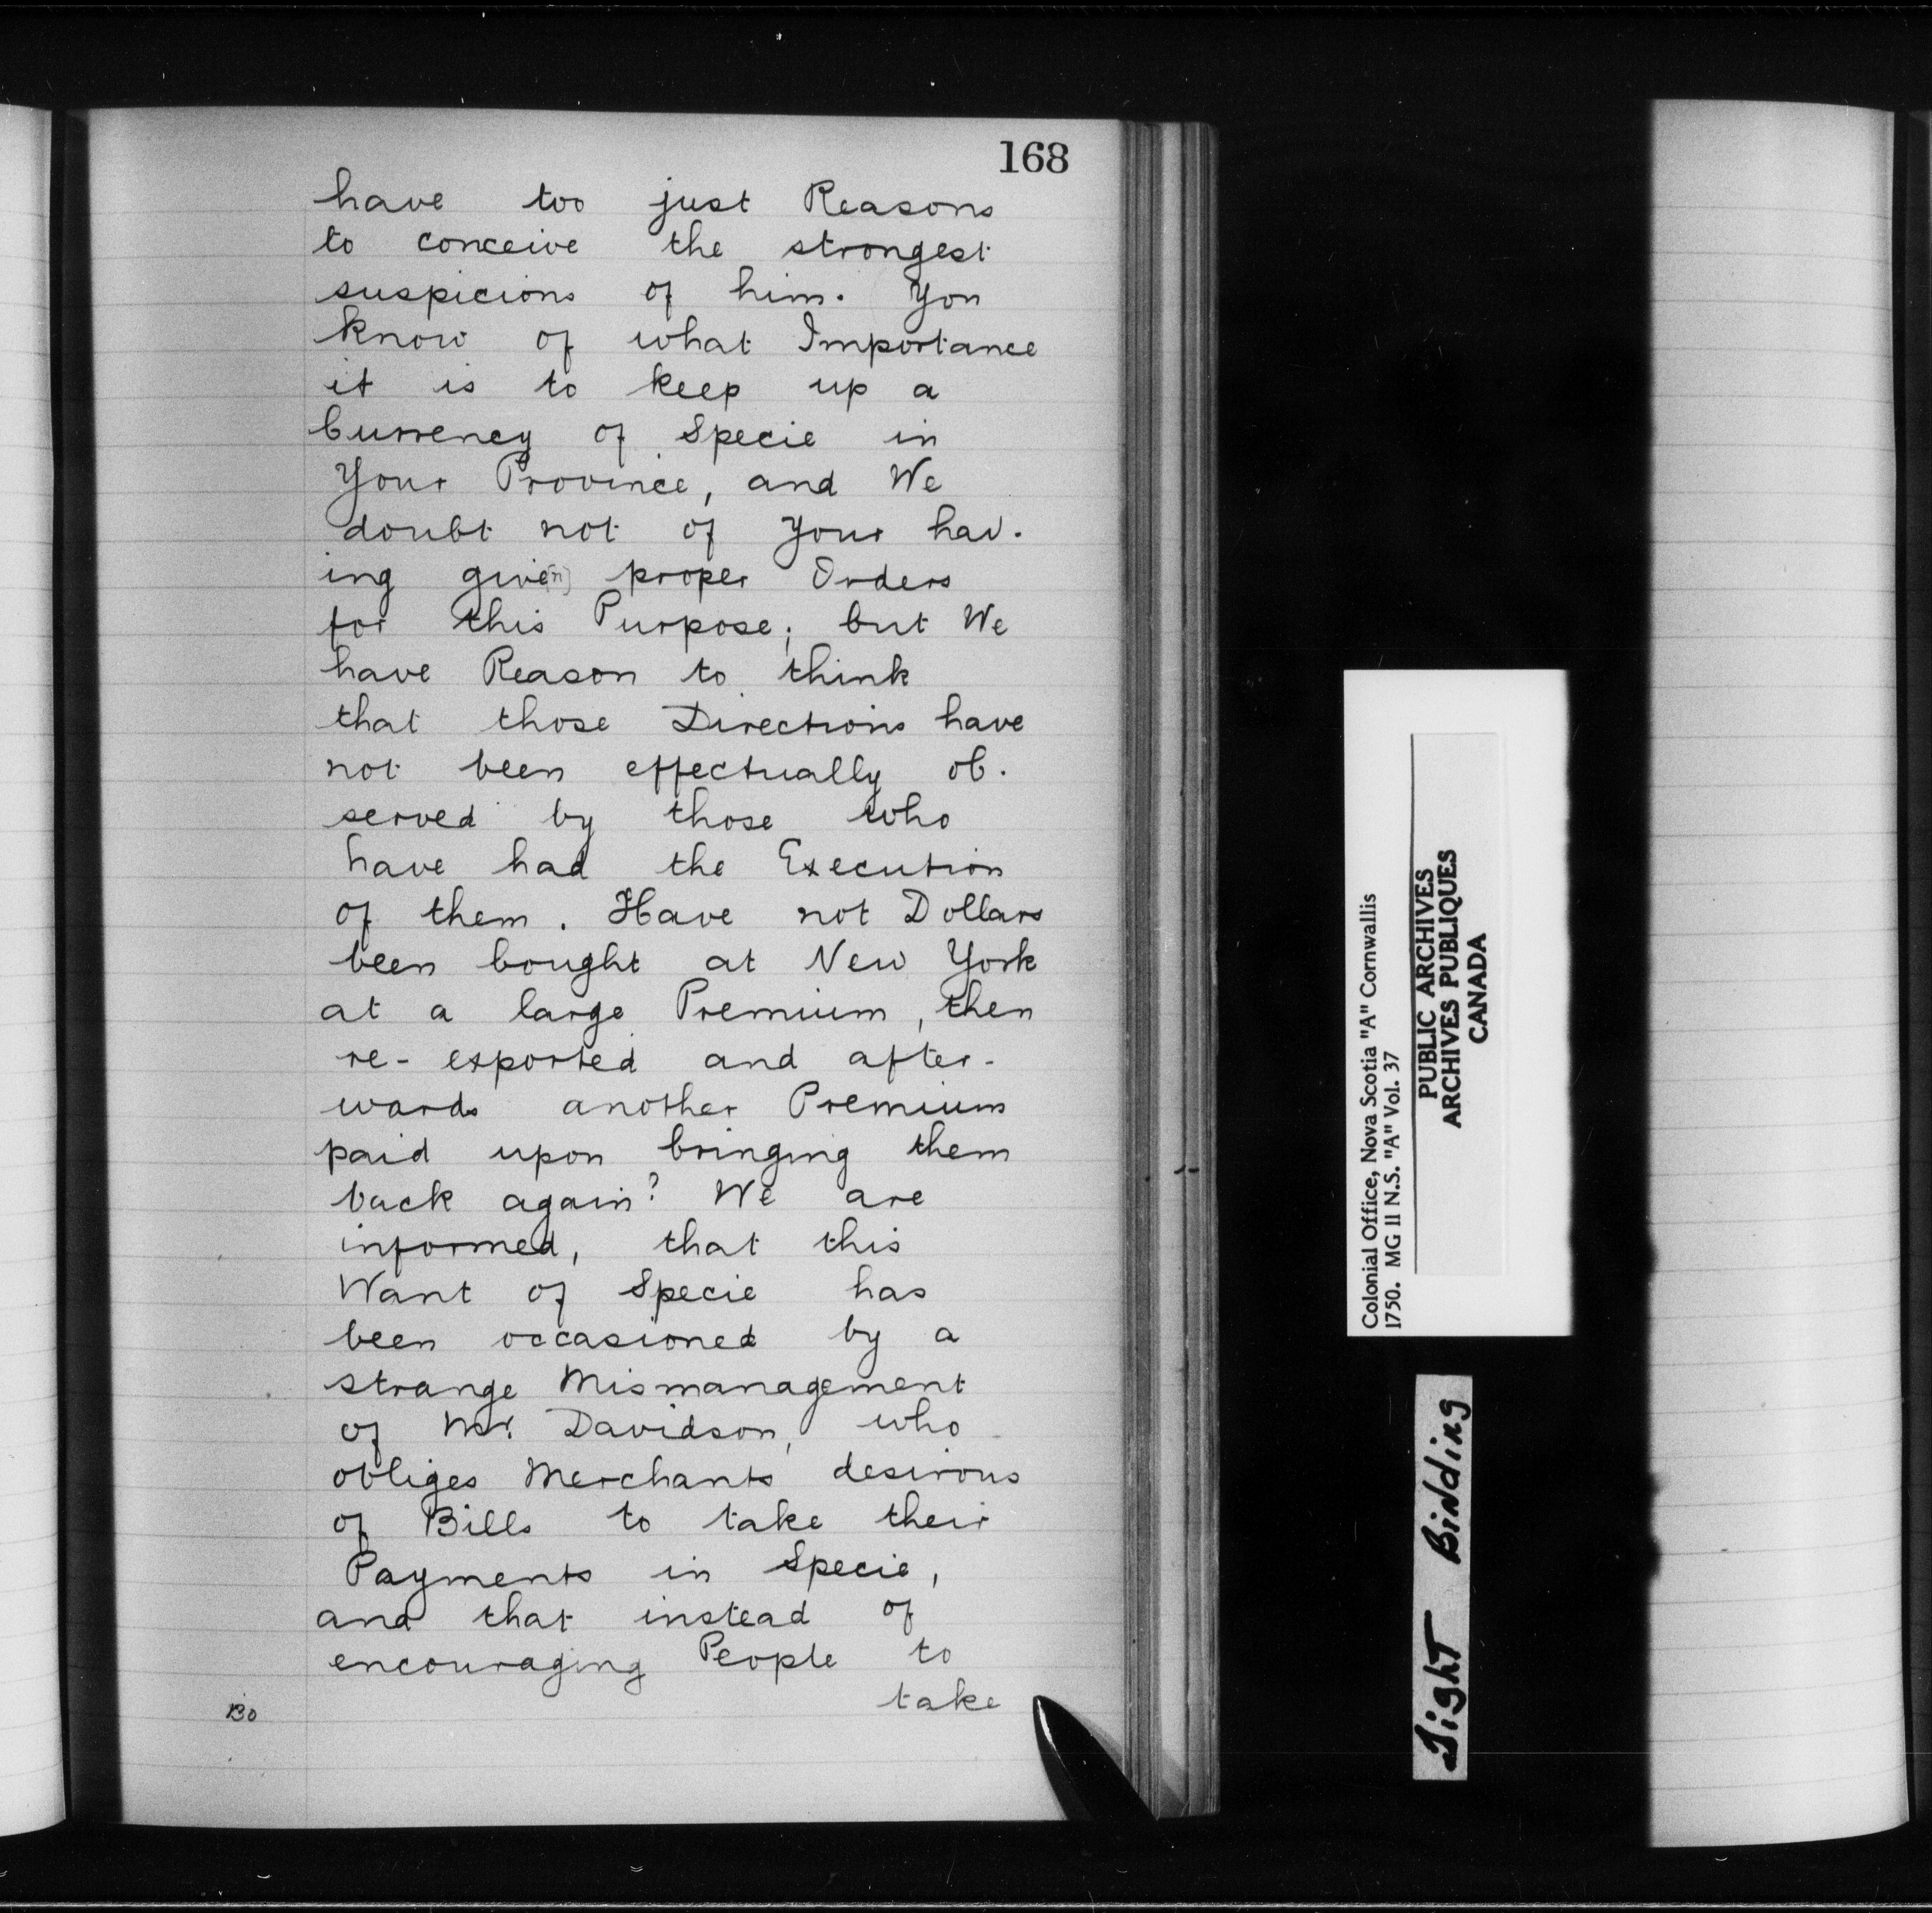 168
have too just Reasons
to conceive the strongest
suspicions of him. You
know of what Importance
it is to keep up a
Currency of Specie in
Your Province, and We
doubt not of Your hav-
ing give[n] proper Orders
for this Purpose; but We
have Reason to think
that those Directions have
not been effectually ob-
served by those who
have had the Execution
of them. Have not Dollars
been bought at New York
at a large Premium, then
re-exported and after-
wards another Premium
paid upon bringing them
back again? We are
informed, that this
Want of Specie has
been occasioned by a
strange Mismanagement
of Mr. Davidson, who
obliges Merchants desirous
of Bills to take their
Payments in Specie,
and that instead of
encouraging People to
take
Colonial Office, Nova Scotia "A" Cornwallis
1750. MG 11 N.S. "A" Vol. 37
PUBLIC ARCHIVES
ARCHIVES PUBLIQUES
CANADA
Tight Binding